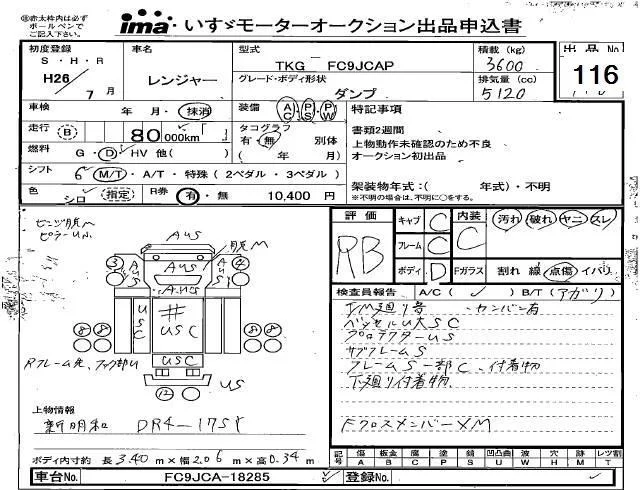 ㊟赤太枠内は必ず
ボールペンで
ご記入下さい。
ima いすゞモーターオークション出品申込書
初度登録 車名 型式 積載 (kg) 出品No
S・H・R TKG FC9JCAP 3600 116
H26 7月 レンジャー グレード・ボディ形状 排気量 (cc)
ダンプ 5120
車検 年 月・抹消 装備 AC PS PW 特記事項
走行 (B) 80,000km タコグラフ 書類2週間
有・無 別体 上物動作未確認のため不良
燃料 G・D・HV 他( ) ( 年 月) オークション初出品
シフト 6 M/T・A/T・特殊(2ペダル・3ペダル)
架装物年式:( 年式)・不明
色 シロ (指定) R券 有・無 10,400円 ※不明の場合は、不明に○をする。
評価 キャブ C 内装 汚れ 破れ ヤニ スレ
RB フレーム C C
ボディ D Fガラス 割れ 線 点傷 イバリ
検査員報告 A/C ( ✓ ) B/T (アガリ)
下廻り害 カンバン有
ベッセルU大SC
プロテクターUS
サブフレームS
フレームS一部C、付着物
下廻り付着物
FクロスメンバーXM
AUS
AUS
③ ④
USC
⑧⑧ ⑧⑧
USC
⑫ US
上物情報
新明和 DR4-17SY
ボディ内寸約 長3.40m×幅2.06m×高0.34m
記号 傷 板金 腐 塗 錆 凹凸曲 波 穴 跡 レツ割
A B C P S U W H M T
車台No. FC9JCA-18285 登録No.